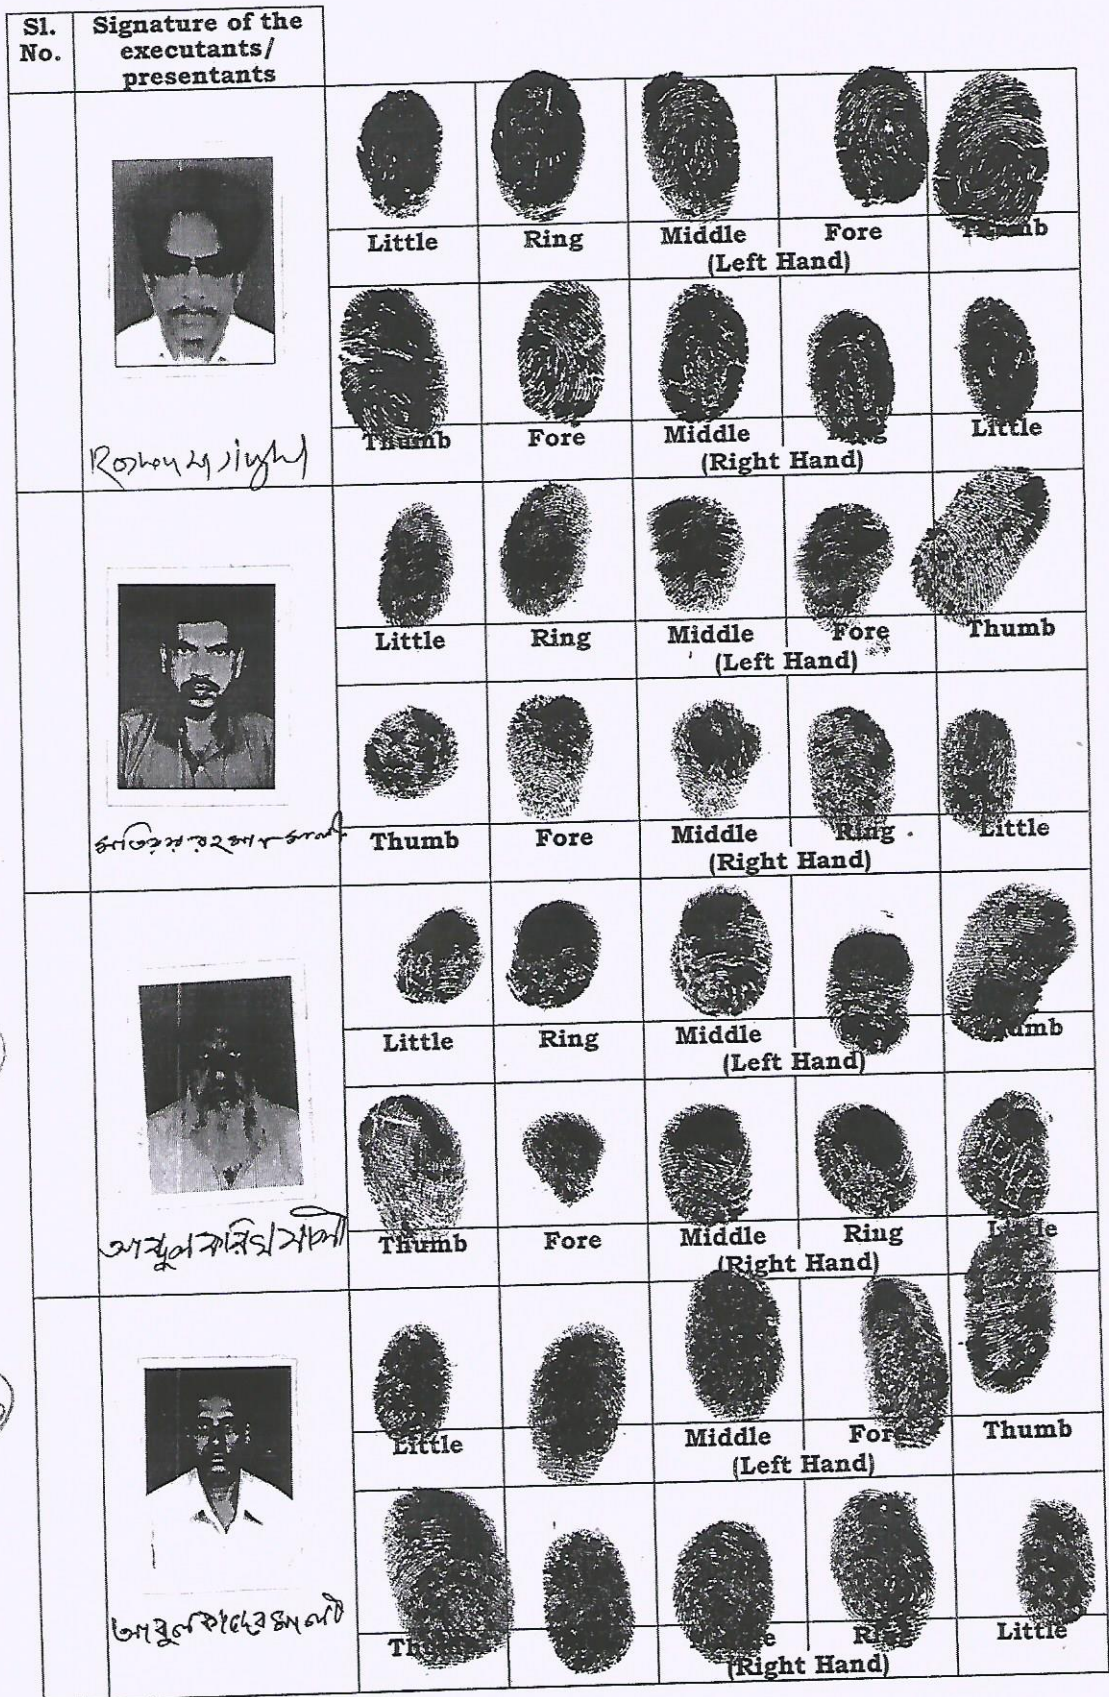 Sl. No.
Signature of the executants/ presentants
Little Ring Middle Fore Thumb
(Left Hand)
Thumb Fore Middle Ring Little
(Right Hand)
Little Ring Middle Fore Thumb
(Left Hand)
Thumb Fore Middle Ring Little
(Right Hand)
Little Ring Middle Thumb
(Left Hand)
Thumb Fore Middle Ring Little
(Right Hand)
আব্দুল করিম
Little Middle Fore Thumb
(Left Hand)
Ring Little
(Right Hand)